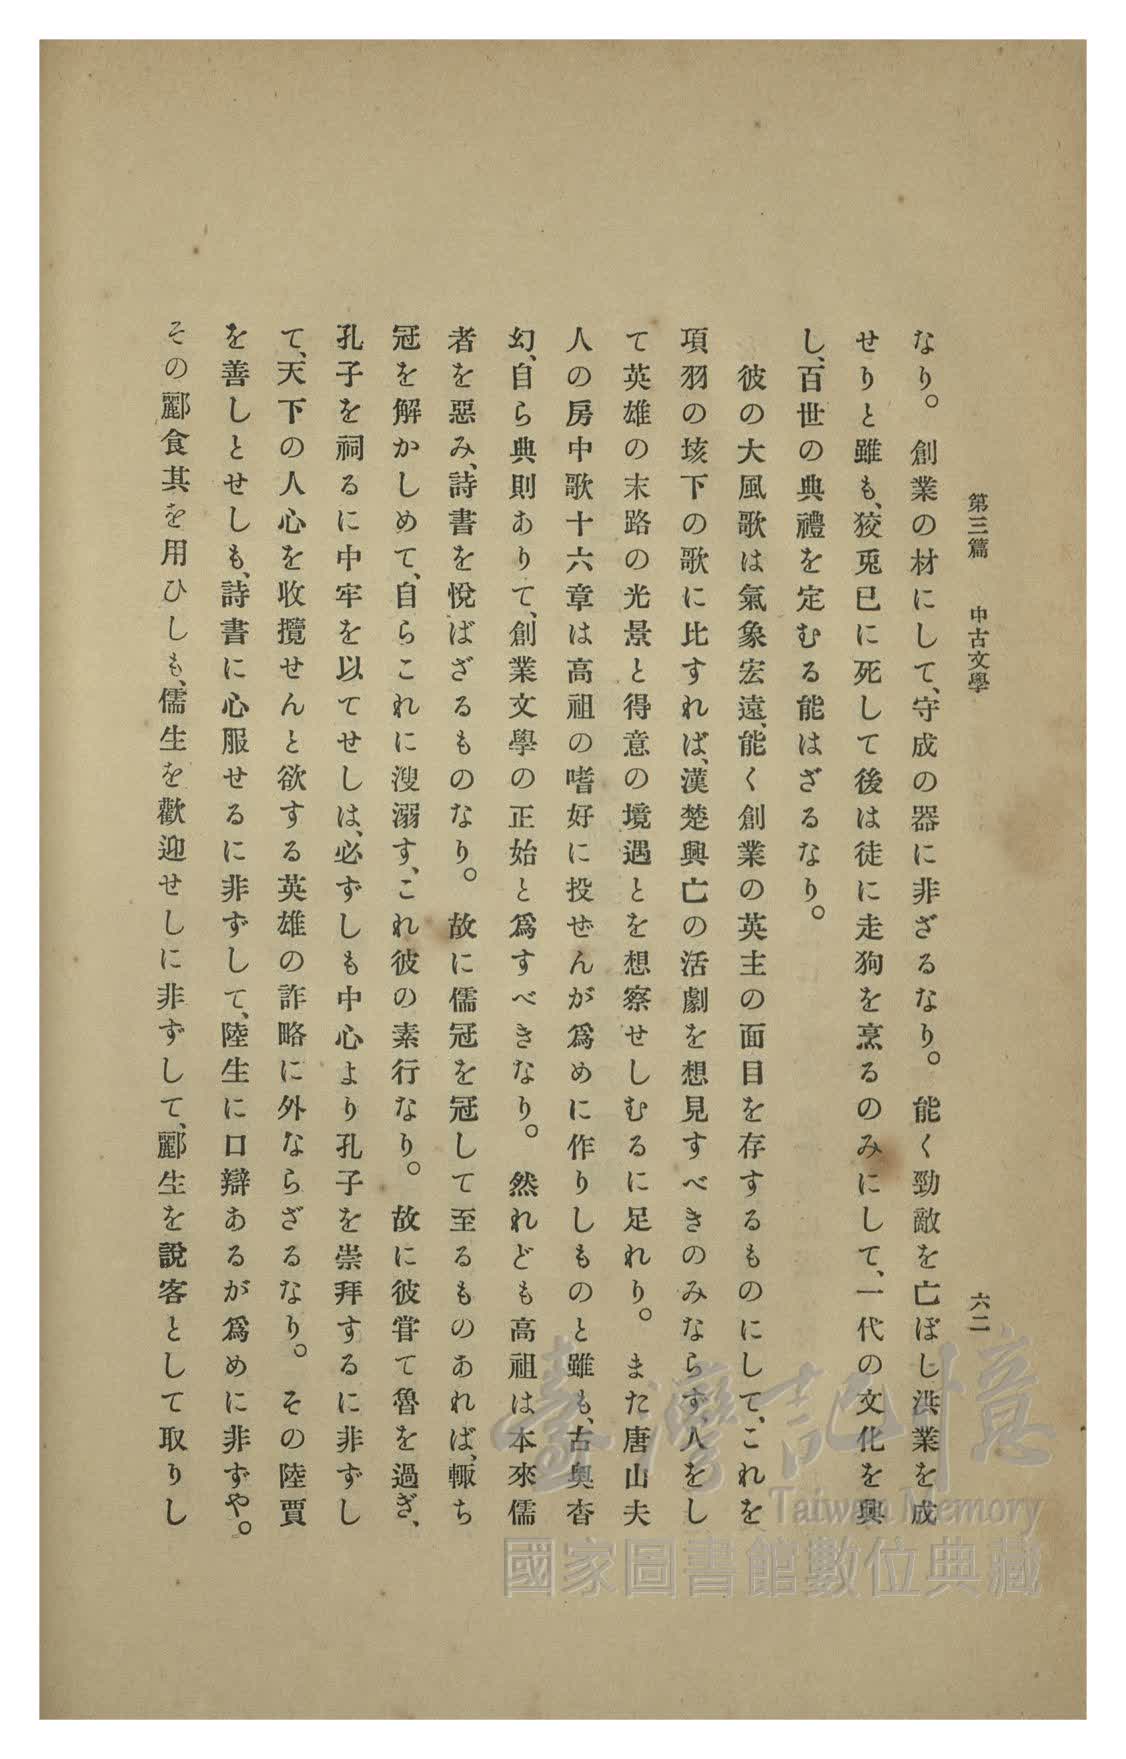 第三篇　中古文學
六二
なり。創業の材にして、守成の器に非ざるなり。能く勁敵を亡ぼし洪業を成
せりと雖も、狡兎已に死して後は徒に走狗を烹るのみにして、一代の文化を興
し、百世の典禮を定むる能はざるなり。
彼の大風歌は氣象宏遠、能く創業の英主の面目を存するものにして、これを
項羽の垓下の歌に比すれば、漢楚興亡の活劇を想見すべきのみならず、人をし
て英雄の末路の光景と得意の境遇とを想察せしむるに足れり。また唐山夫
人の房中歌十六章は高祖の嗜好に投ぜんが爲めに作りしものと雖も、古奧杳
幻、自ら典則ありて、創業文學の正始と爲すべきなり。然れども高祖は本來儒
者を惡み、詩書を悅ばざるものなり。故に儒冠を冠して至るものあれば、輙ち
冠を解かしめて、自らこれに溲溺す、これ彼の素行なり。故に彼嘗て魯を過ぎ、
孔子を祠るに中牢を以てせしは、必ずしも中心より孔子を崇拜するに非ずし
て、天下の人心を收攬せんと欲する英雄の詐略に外ならざるなり。その陸賈
を善しとせしも、詩書に心服せるに非ずして、陸生に口辯あるが爲めに非ずや。
その酈食其を用ひしも、儒生を歡迎せしに非ずして、酈生を說客として取りし
臺灣記憶
Taiwan Memory
國家圖書館數位典藏